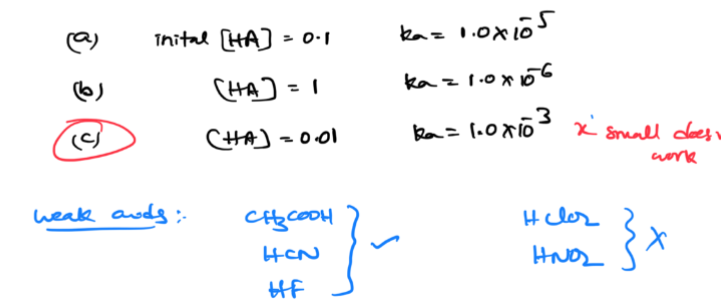 (a) inital [HA] = 0.1 ka = 1.0 x 10⁻⁵
(b) [HA] = 1 ka = 1.0 x 10⁻⁶
(c) [HA] = 0.01 ka = 1.0 x 10⁻³ x small does
work
weak acids :- CH3COOH HClO2
HCN ✓ HNO2 X
HF